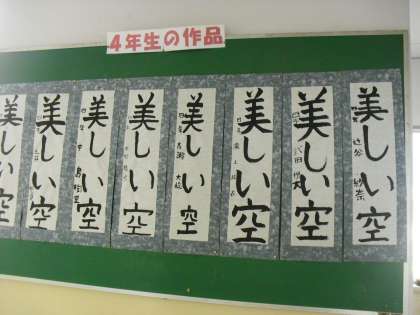 4年生の作品
美しい空
美しい空
美しい空
美しい空
美しい空
美しい空
美しい空
美しい空